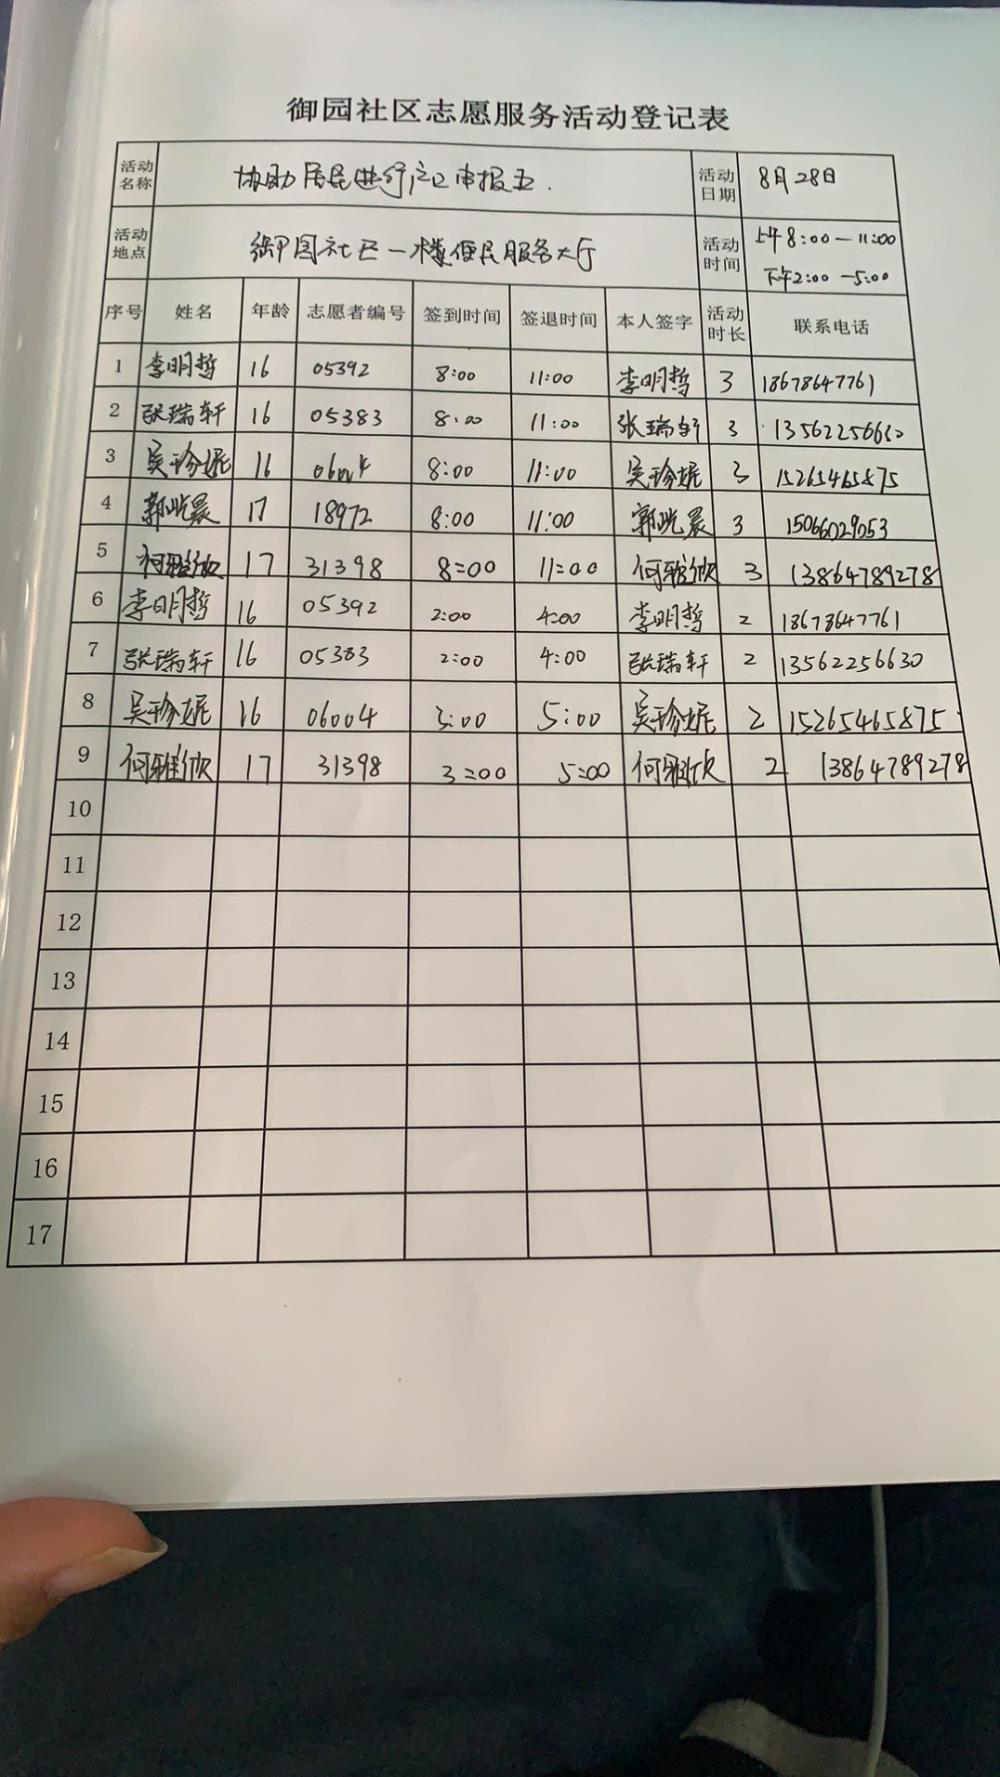 御园社区志愿服务活动登记表
活动名称 协助居民进行 申报 活动日期 8月28日
活动地点 御园社区一楼便民服务大厅 活动时间 上午8:00—11:00
下午2:00—5:00
序号 姓名 年龄 志愿者编号 签到时间 签退时间 本人签字 活动时长 联系电话
1 李明哲 16 05392 8:00 11:00 李明哲 3 18678647761
2 张瑞轩 16 05383 8:00 11:00 张瑞轩 3
3 吴珍妮 16 06004 8:00 11:00 吴珍妮 3 15265465875
4 郭晨 17 18972 8:00 11:00 郭晨 3 15066029053
5 何雅欣 17 31398 8:00 11:00 何雅欣 3 13864789278
6 李明哲 16 05392 2:00 4:00 李明哲 2 18678647761
7 张瑞轩 16 05383 2:00 4:00 张瑞轩 2 13562256630
8 吴珍妮 16 06004 3:00 5:00 吴珍妮 2 15265465875
9 何雅欣 17 31398 3:00 5:00 何雅欣 2 13864789278
10
11
12
13
14
15
16
17